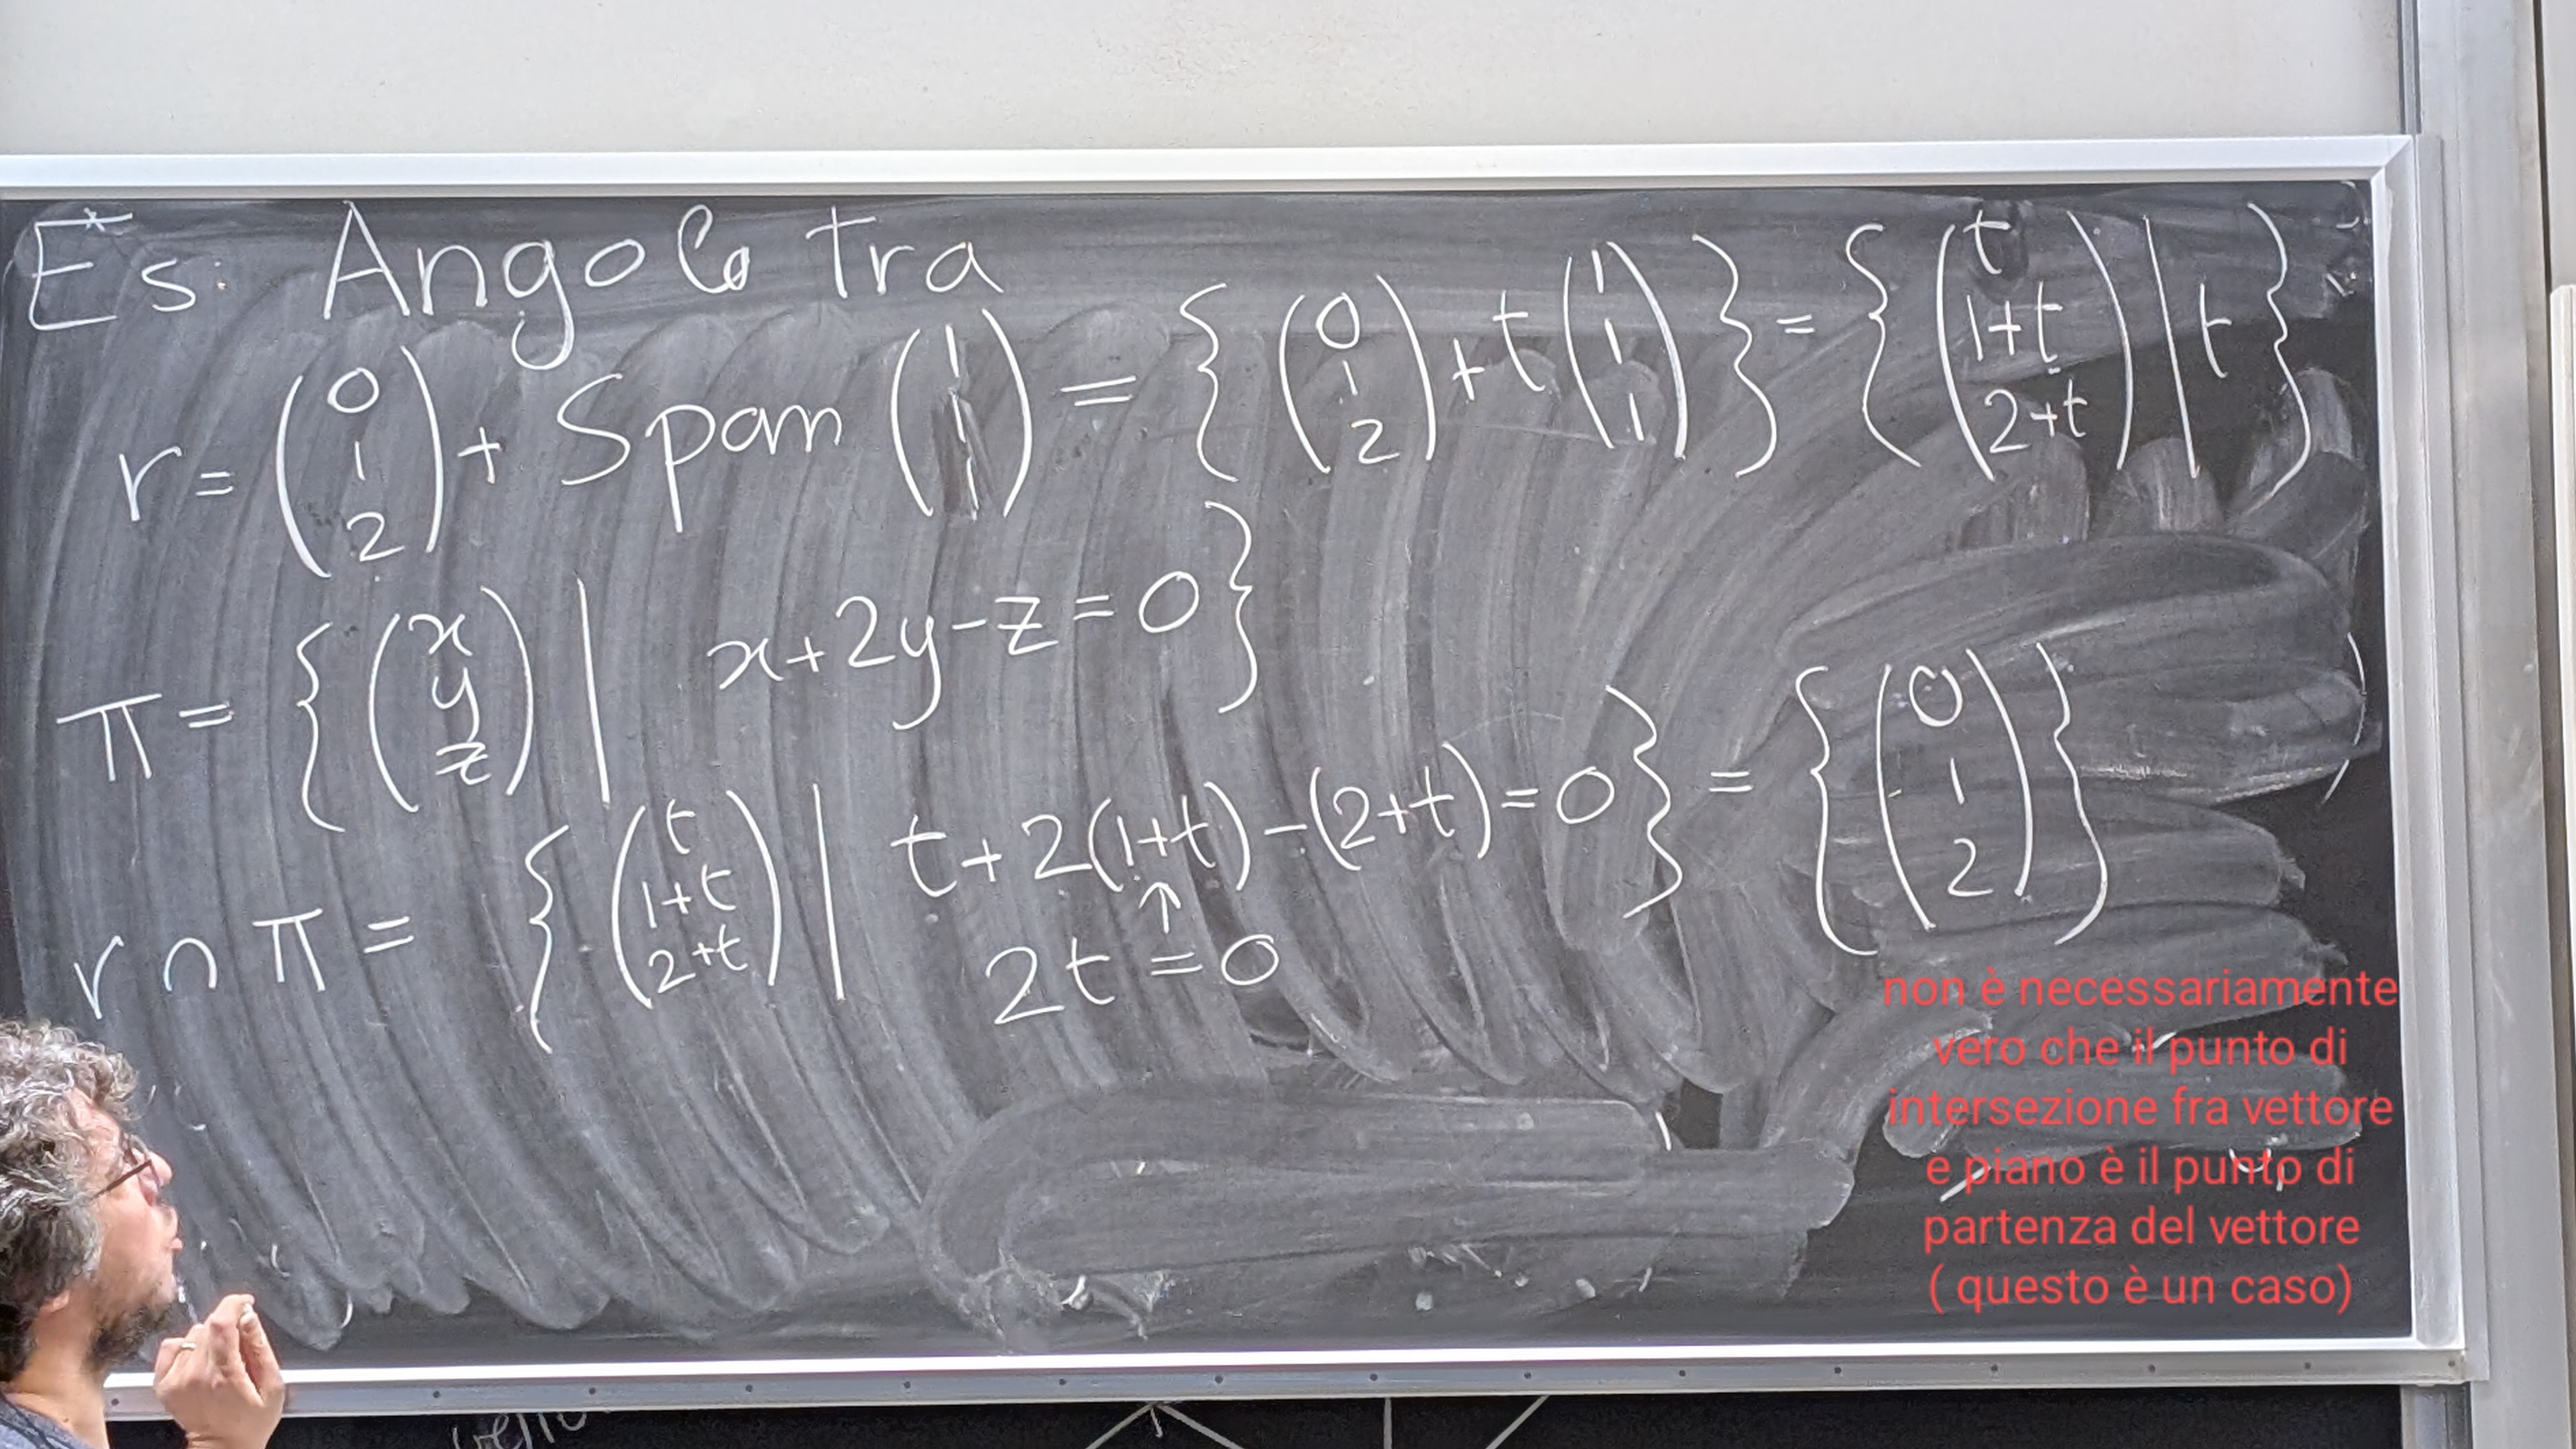 Es: Angolo tra
r = (0 1 2) + Span (1 1 1) = { (0 1 2) + t (1 1 1) } = { (t 1+t 2+t) | t }
π = { (x y z) | x+2y-z=0 }
r ∩ π = { (t 1+t 2+t) | t+2(1+t)-(2+t)=0 } = { (0 1 2) }
↑
2t = 0
non è necessariamente
vero che il punto di
intersezione fra vettore
e piano è il punto di
partenza del vettore
( questo è un caso)